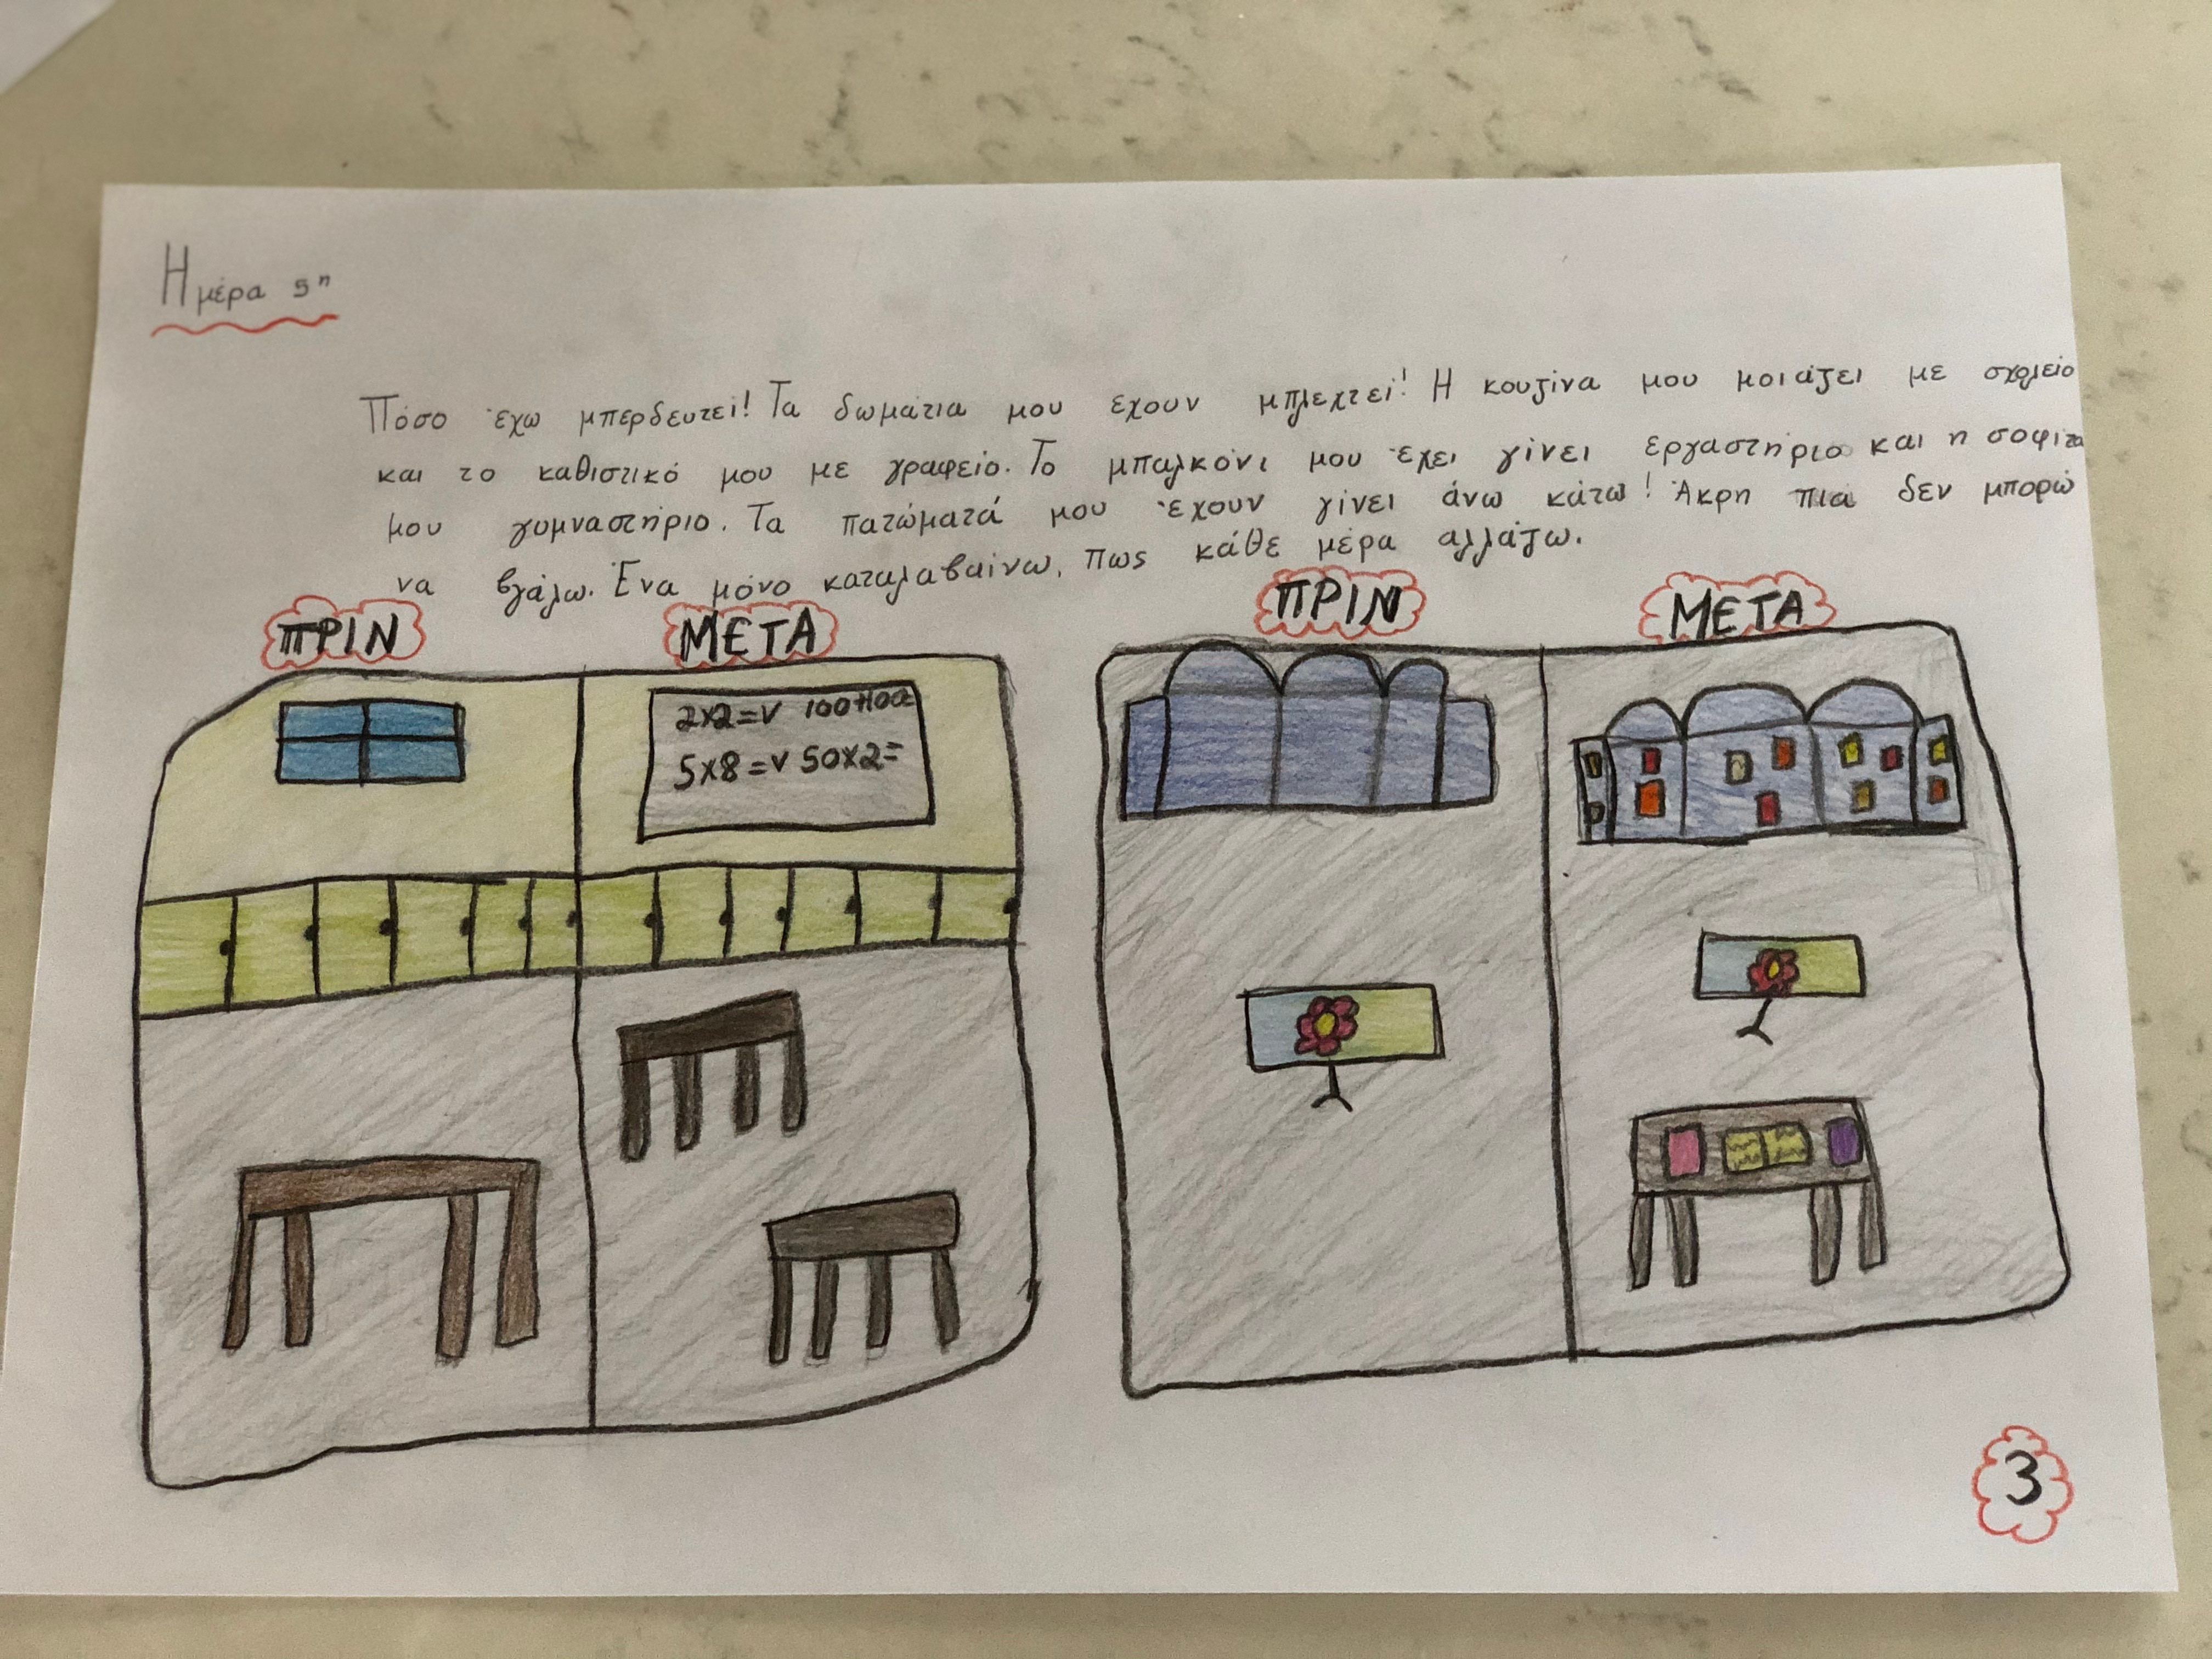 Ημέρα 5η
Πόσο έχω μπερδευτεί! Τα δωμάτια μου έχουν μπλεχτεί! Η κουζίνα μου μοιάζει με σχολείο
και το καθιστικό μου με γραφείο. Το μπαλκόνι μου έχει γίνει εργαστήριο και η σοφίτα
μου γυμναστήριο. Τα πατώματά μου έχουν γίνει άνω κάτω! Άκρη πια δεν μπορώ
να βγάλω. Ένα μόνο καταλαβαίνω, πως κάθε μέρα αλλάζω.
ΠΡΙΝ ΜΕΤΑ ΠΡΙΝ ΜΕΤΑ
2x2=v 100+100
5x8=v 50x2=
3